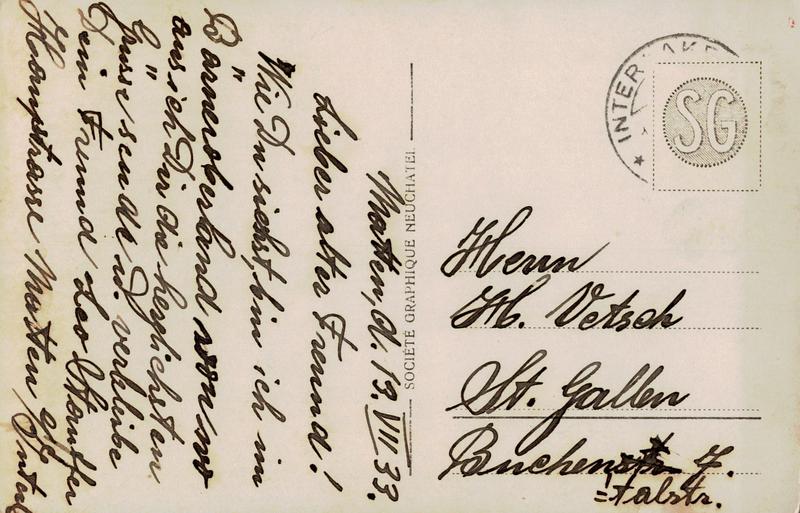 Matten, d. 19. VII 33.
Lieber alter Freund!
Wie Du siehst, bin ich im
Bärneroberland von wo
aus ich Dir die herzlichsten
Grüsse sende u. verbleibe
Dein Freund Leo Stauffer
Hauptstrasse Matten
SOCIÉTÉ GRAPHIQUE NEUCHATEL
INTERLAKEN
SG
Herrn
H. Vetsch
St. Gallen
Buchen 7.
=talstr.